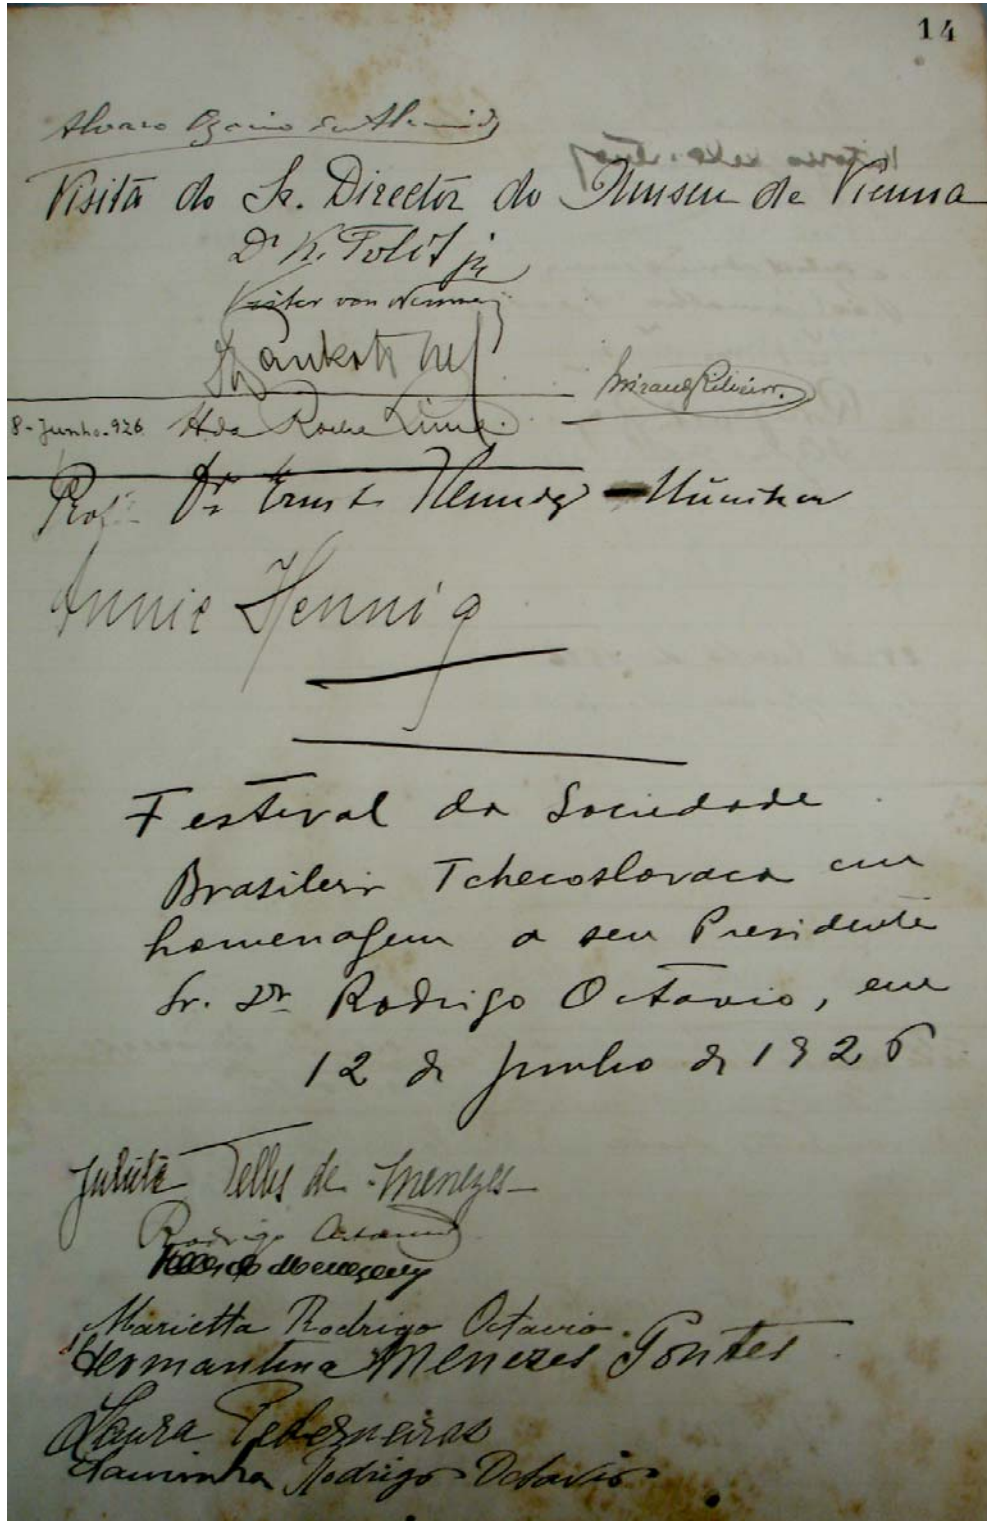 14
Alvaro Ozorio de Almeida
Visita do Sr. Director do Museu de Vienna
Dr K.
Victor von
Miranda Ribeiro.
8-Junho-926. H da Rocha Lima.
Prof. Dr Ernst Hennig - München
Annie Hennig
Festival da Sociedade
Brasileir Tchecoslovaca em
homenagem a seu Presidente
Sr. Dr Rodrigo Octavio, em
12 de Junho de 1926
Julieta Telles de Menezes
Rodrigo Octavio
Marietta Rodrigo Octavio.
Hermantina Menezes Pontes
Laura Pederneiras
Laurinha Rodrigo Octavio